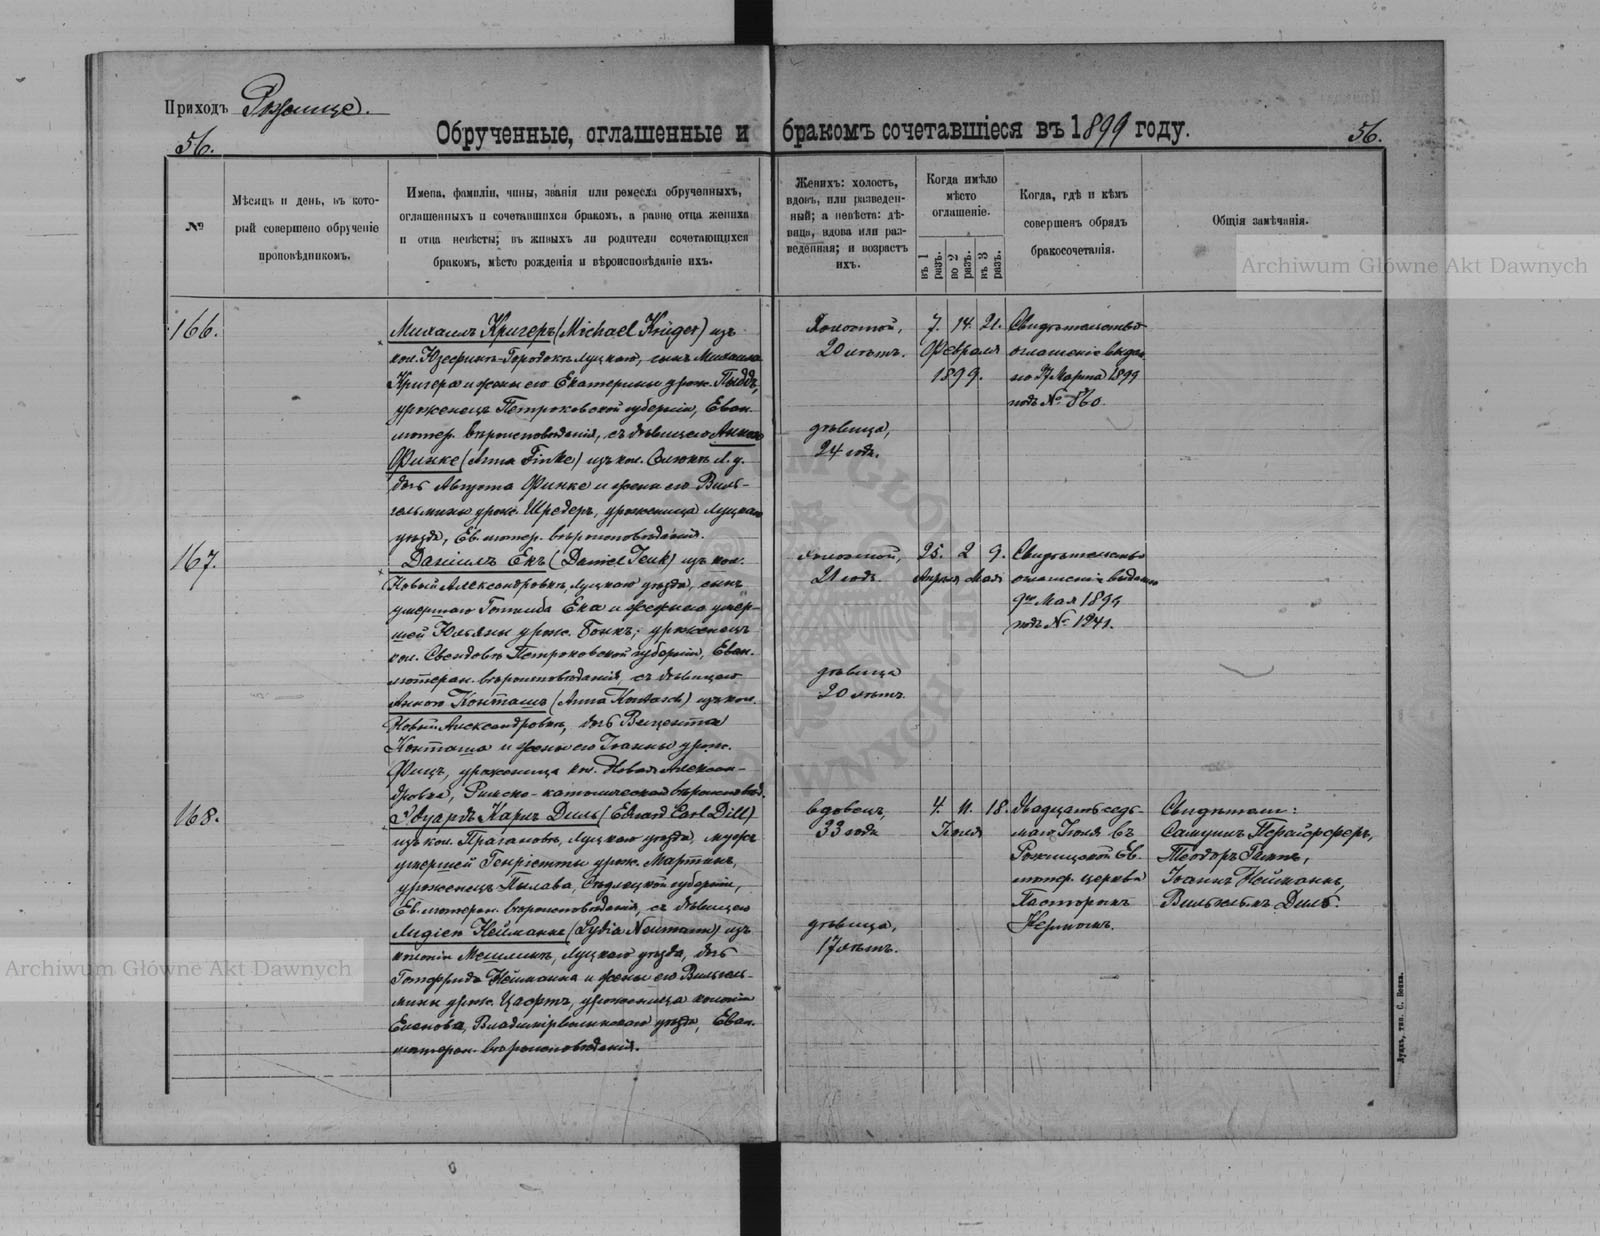 Приходъ Рожище.
56.
Обрученные, оглашенные и бракомъ сочетавшіеся въ 1899 году.
56.
№
Мѣсяцъ и день, въ кото-
рый совершено обрученіе
проповѣдникомъ.
Имена, фамиліи, чины, званія или ремесла обрученныхъ,
оглашенныхъ и сочетавшихся бракомъ, а равно отца жениха
и отца невѣсты; въ живыхъ ли родители сочетающихся
бракомъ, мѣсто рожденія и вѣроисповѣданіе ихъ.
Женихъ: холостъ,
вдовъ, или разведен-
ный; а невѣста: дѣ-
вица, вдова или раз-
веденная; и возрастъ
ихъ.
Когда имѣло
мѣсто
оглашеніе.
въ 1 разъ.
во 2 разъ.
въ 3 разъ.
Когда, гдѣ и кѣмъ
совершенъ обрядъ
бракосочетанія.
Общія замѣчанія.
Archiwum Główne Akt Dawnych
166.
Михаилъ Кригеръ (Michael Krüger) изъ
кол. Юзефинъ-Городокъ Луцкаго, сынъ Михаила
Кригера и жены его Екатерины урож.
уроженецъ Петроковской губерніи, Еван.
лютер. вѣроисповѣданія, съ дѣвицею Анною
Финке (Anna Finke) изъ кол. Л. у.
дочь Августа Финке и жены его Виль-
гельмины урож. Шредеръ, уроженица Луцкаго
уѣзда, Ев. лютер. вѣроисповѣданія.
Холостой,
20 лѣтъ.
дѣвица,
24 года.
7. 14. 21.
Февраля
1899.
Свидѣтельство
оглашеніе выда-
но 27 Марта 1899
подъ № 860.
167.
Даніилъ Екъ (Daniel Jeuk) изъ кол.
Новый Александровкъ, Луцкаго уѣзда, сынъ
умершаго Готлиба Ека и жены его умер-
шей Юльяны урож. Бонкъ, уроженецъ
кол. Свендовъ Петроковской губерніи, Еван.
лютеран. вѣроисповѣданія, съ дѣвицею
Анною Конташъ (Anna Kontasch) изъ кол.
Новый Александровкъ, дочь Вицента
Конташа и жены его Іоанны урож.
Фицъ, уроженица кол. Новая Алексан-
дровка, Римско-католическаго вѣроисповѣд.
холостой,
21 годъ.
дѣвица
20 лѣтъ.
25. 2 9.
Апрѣля Мая
Свидѣтельство
оглашеніи выдано
9го Мая 1899
подъ № 1241.
168.
Эдуардъ Карлъ Диль (Eduard Carl Dill)
изъ кол. Пракановъ, Луцкаго уѣзда, мужъ
умершей Генріетты урож. Мартинъ,
уроженецъ Пылава, Сѣдлецкой губерніи,
Ев. лютеран. вѣроисповѣданія, съ дѣвицею
Лидіею Нейманнъ (Lydia Neumann) изъ
колоніи Луцкаго уѣзда, дочь
Готфрида Нейманна и жены его Вильгель-
мины урож. уроженица колоніи
Еленова, Владимірволынскаго уѣзда, Еван.
лютеран. вѣроисповѣданія.
вдовецъ,
33 года
дѣвица,
17 лѣтъ.
4. 11. 18.
Іюля
Двадцать седь-
маго Іюля въ
Рожищской Ев.
лютер. церкви
Пасторомъ
Керномъ.
Свидѣтели:
Самуилъ Перайфферъ,
Теодоръ
Іоаннъ Нейманнъ,
Вильгельмъ Диль.
Archiwum Główne Akt Dawnych
Луцкъ, тип. С. Бокка.